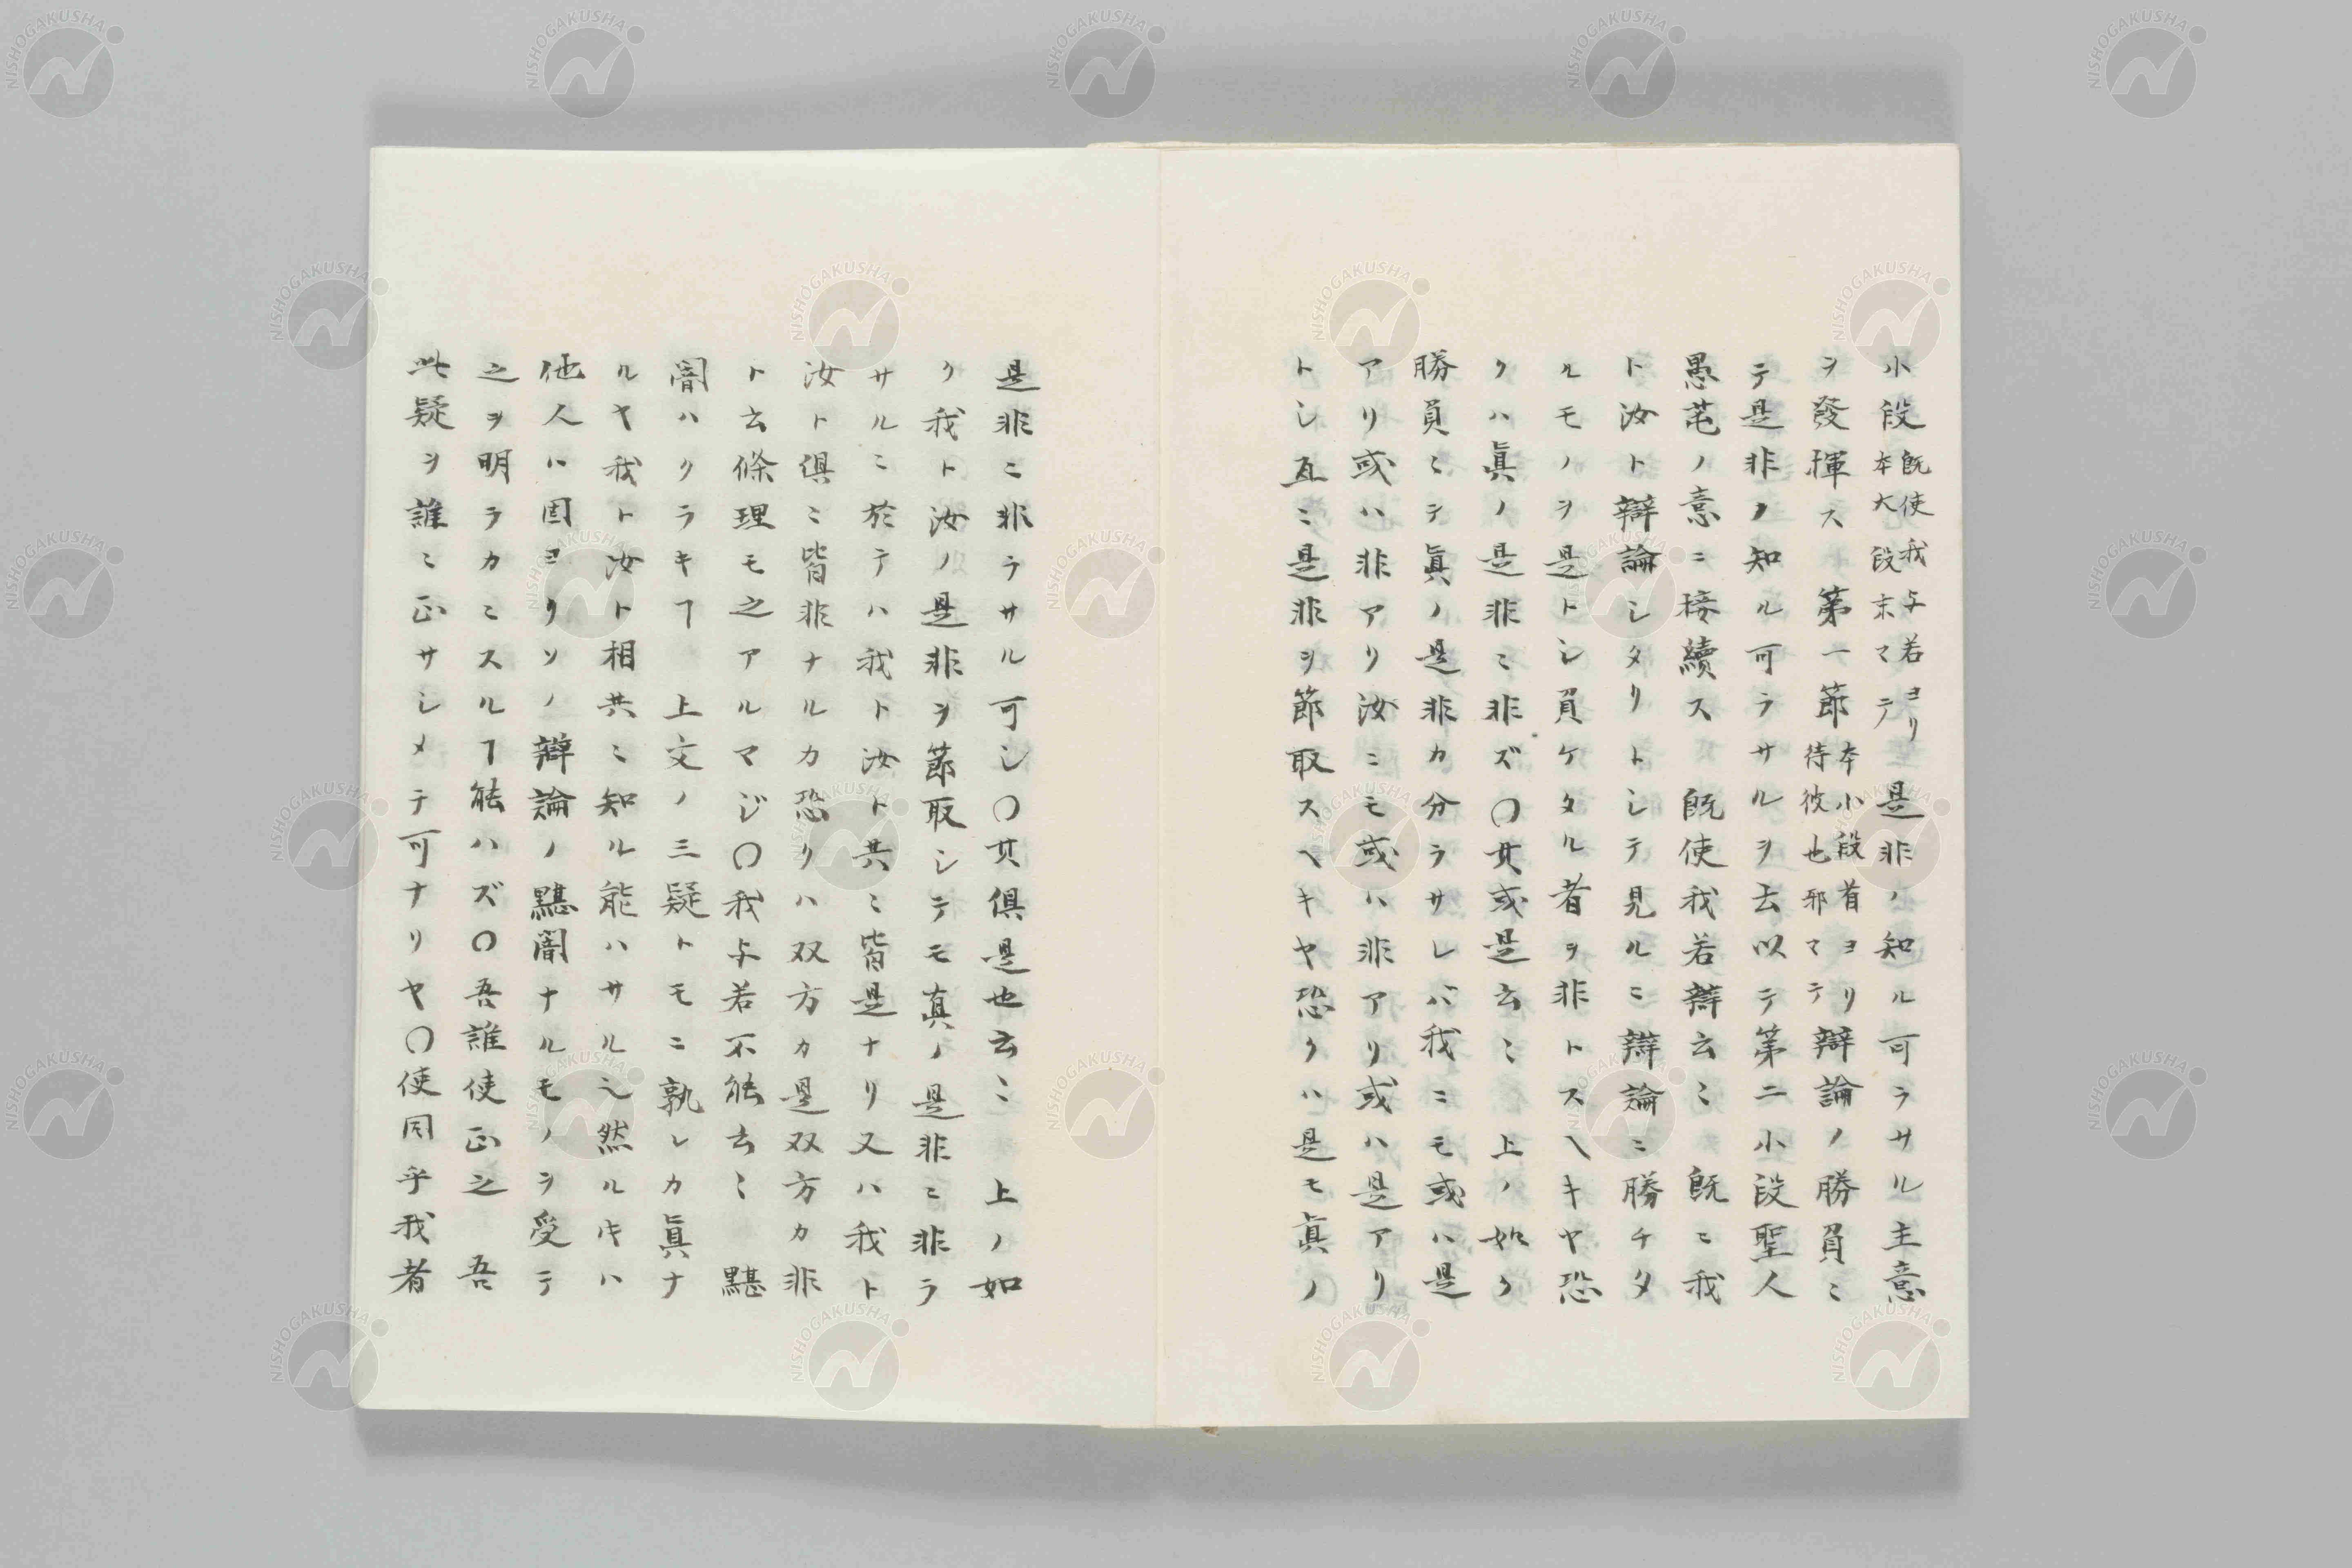 小段既使我与若ヨリ本大段末マテ是非ノ知ル可ラサル主意
ヲ發揮ス 第一節本小段首ヨリ待彼也邪マテ辯論ノ勝負ニ
テ是非ノ知ル可ラサルヲ去以テ第二小段聖人
愚芚ノ意ニ接續ス 既使我若辯云〻 既ニ我
ト汝ト辯論シタリトシテ見ルニ辯論ニ勝チタ
ルモノヲ是トシ負ケタル者ヲ非トスヘキヤ恐
クハ眞ノ是非ニ非ズ〇其或是云〻 上ノ如ク
勝負ニテ眞ノ是非カ分ラサレバ我ニモ或ハ是
アリ或ハ非アリ汝ニモ或ハ非アリ或ハ是アリ
トシ互ニ是非ヲ節取スヘキヤ恐クハ是モ眞ノ
是非ニ非ラサル可シ〇其俱是也云〻 上ノ如
ク我ト汝ノ是非ヲ節取シテモ真ノ是非ニ非ラ
サルニ於テハ我ト汝ト共ニ皆是ナリ又ハ我ト
汝ト俱ニ皆非ナルカ恐クハ双方カ是双方カ非
ト云條理モ之アルマジ〇我与若不能云〻 黮
闇ハクラキヿ 上文ノ三疑トモニ孰レカ眞ナ
ルヤ我ト汝ト相共ニ知ル能ハサル也然ル𪜈ハ
他人ハ固ヨリソノ辯論ノ黮闇ナルモノヲ受テ
之ヲ明ラカニスルヿ能ハズ〇吾誰使正之 吾
此疑ヲ誰ニ正サシメテ可ナリヤ〇使同乎我者